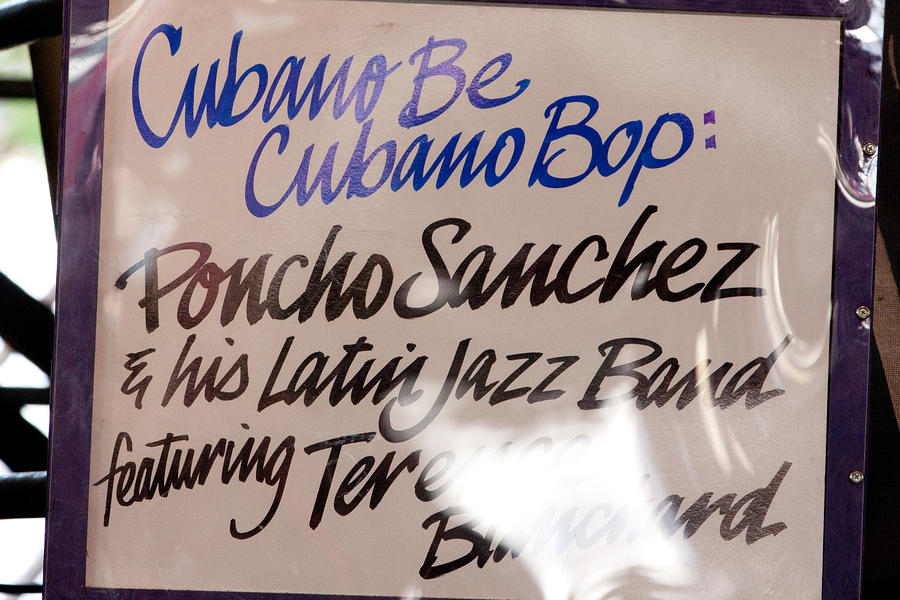 Cubano Be
Cubano Bop:
Poncho Sanchez
& his Latin Jazz Band
featuring Terence
Blanchard